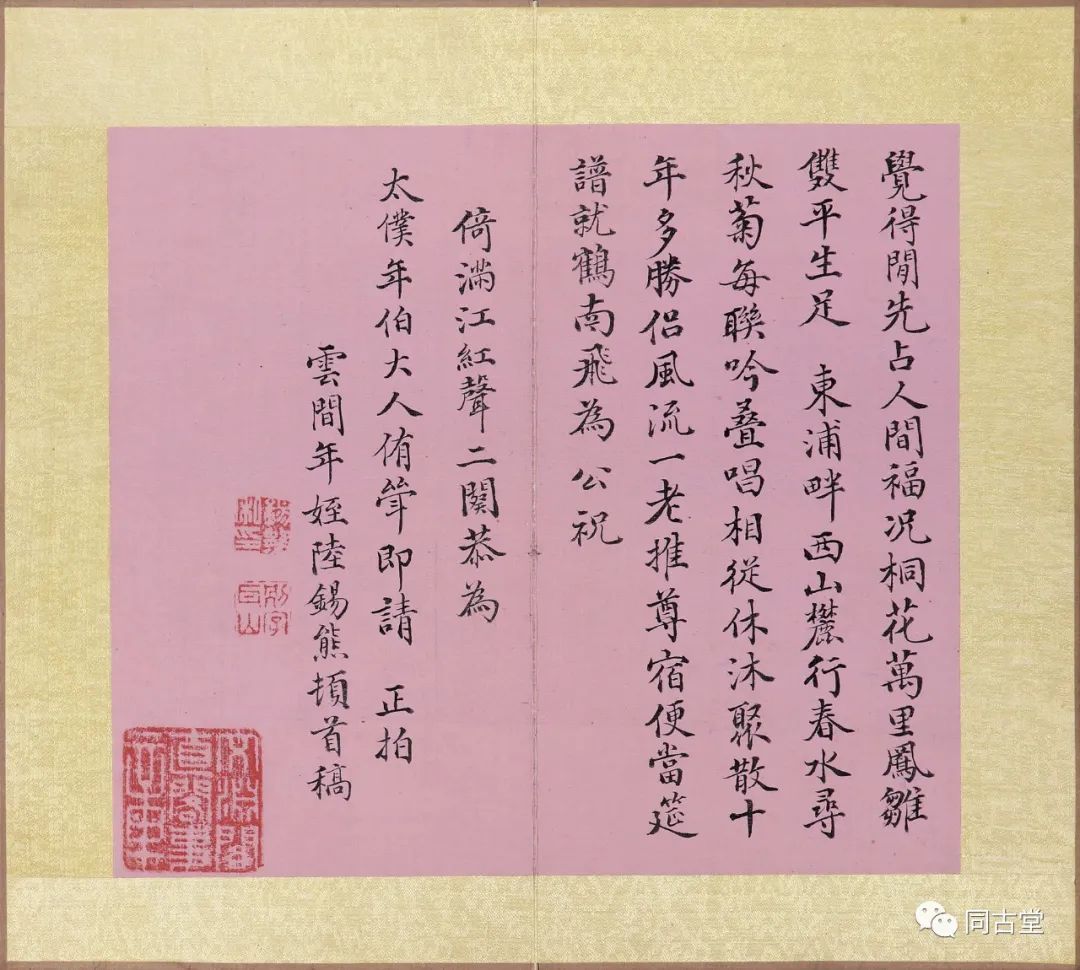 覺得閒先占人間福況桐花萬里鳳雛
雙平生足　東浦畔西山麓行春水尋
秋菊每聯吟叠唱相從休沐聚散十
年多勝侶風流一老推尊宿便當筵
譜就鶴南飛為公祝
倚滿江紅聲二闋恭為
太僕年伯大人侑觴即請　正拍
雲間年姪陸錫熊頓首稿
同古堂